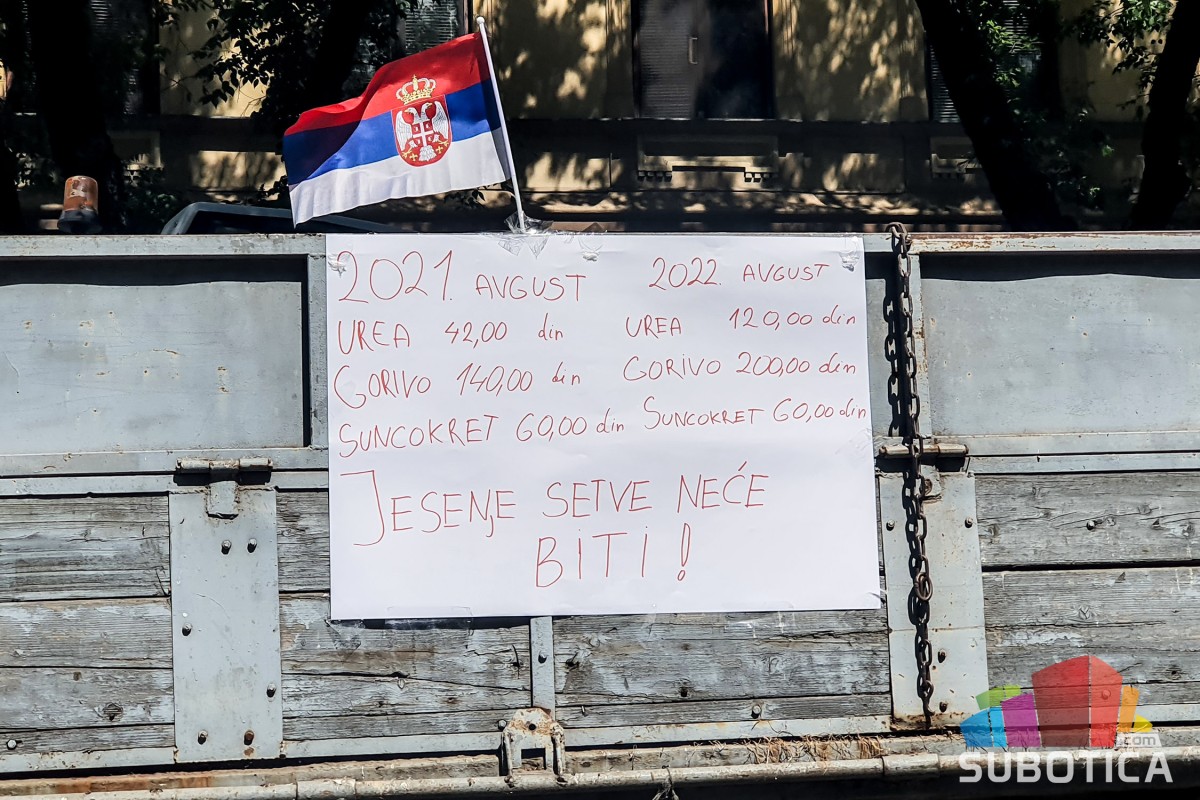 2021. AVGUST 2022. AVGUST
UREA 42,00 din UREA 120,00 din
GORIVO 140,00 din GORIVO 200,00 din
SUNCOKRET 60,00 din SUNCOKRET 60,00 din
JESENJE SETVE NEĆE
BITI!
.com
SUBOTICA